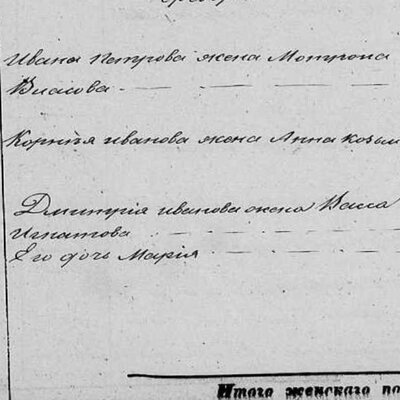 Ивана Петрова жена Мотрона
Власова
Корнѣя Иванова жена Анна Козьм
Дмитрія Иванова жена Васса
Игнатова
Его дочь Марія
Итого женскаго по